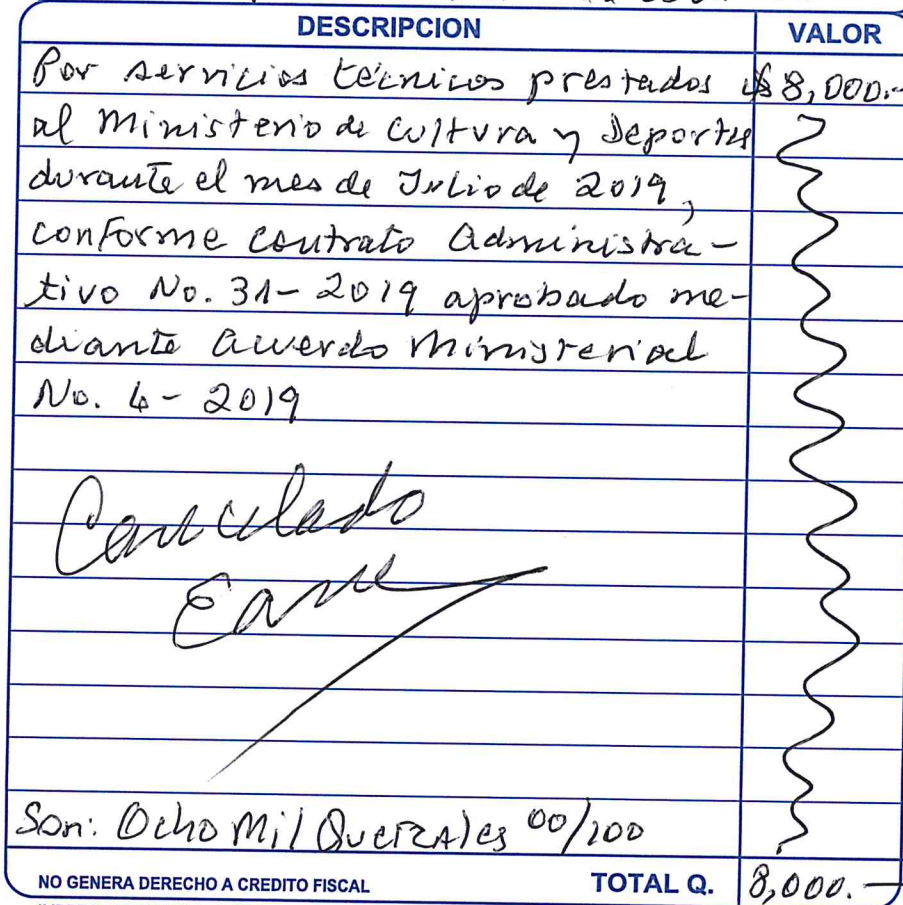 DESCRIPCION VALOR
Por servicios técnicos prestados $8,000.-
al Ministerio de Cultura y Deportes
durante el mes de Julio de 2019,
conforme contrato Administra-
tivo No. 31-2019 aprobado me-
diante acuerdo Ministerial
No. 4-2019
Cancelado
Son: Ocho Mil Quetzales 00/100
NO GENERA DERECHO A CREDITO FISCAL TOTAL Q. 8,000.—